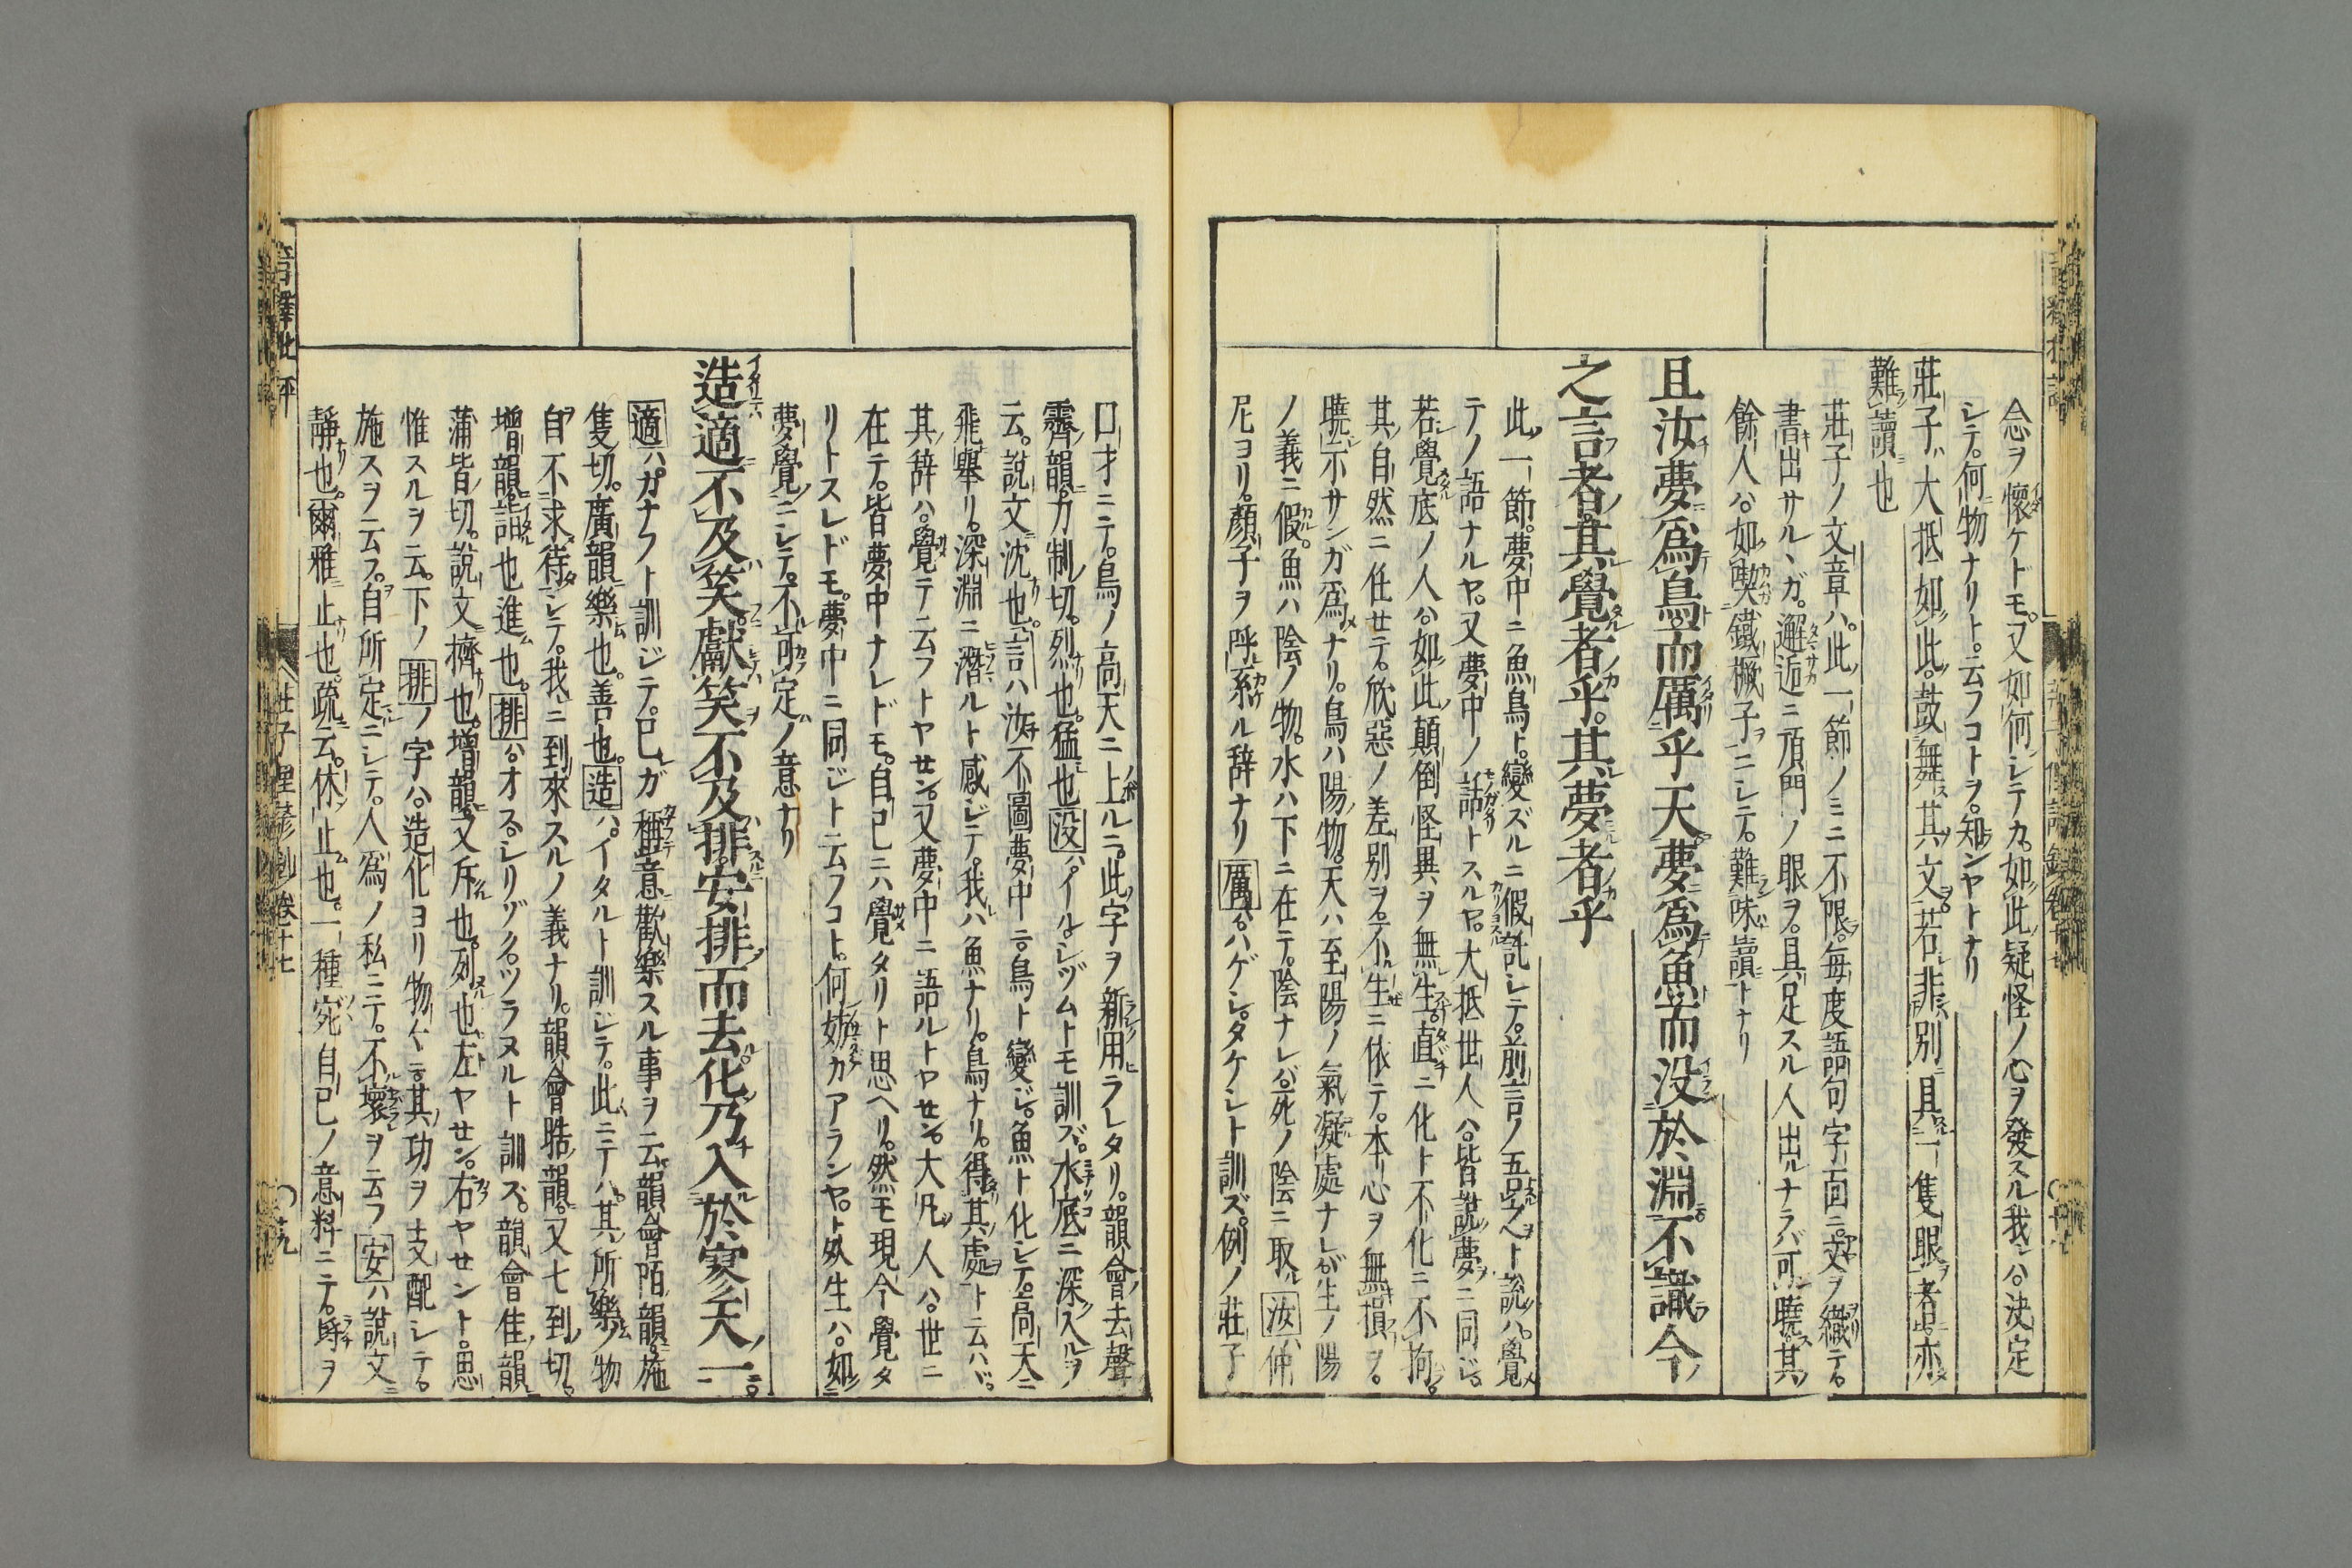 念ヲ懷ケドモ。又如何シテカ。如此疑怪ノ心ヲ發スル我ゾハ。決定
シテ。何物ナリト。云フコトヲ。知ンヤトナリ
莊子ガ大抵如此。鼓舞其文。若非別具一隻眼者。亦
難讀也
莊子ノ文章ハ。此一節ノミニ不限。每度語句字面ニ。文ヲ織テ。
書出サルヽガ。邂逅ニ頂門ノ眼ヲ。具足スル人出ルナラバ可曉。其
餘人ハ。如喫鐵橛子ニシテ。難味讀トナリ
且汝夢爲鳥而厲乎天夢爲魚而没於淵不識今
之言者。其覺者乎。其夢者乎
此一節。夢中ニ魚鳥ト。變ズルニ假託シテ。前言ノ吾之ト說ハ。覺
テノ語ナルヤ。又夢中ノ話トスルヤ。大抵世人ハ。皆說夢ニ同ジ。
若覺底ノ人ハ。如此顛倒怪異ヲ無生。直ニ化ト不化ニ不拘。
其自然ニ任セテ。欣惡ノ差別ヲ不生ニ依テ。本心ヲ無損ヲ。
曉示サンガ爲ナリ。鳥ハ陽物。天ハ至陽ノ氣凝處ナレバ生ノ陽
ノ義ニ假。魚ハ陰ノ物。水ハ下ニ在テ。陰ナレバ死ノ陰ニ取ル。汝ハ仲
尼ヨリ。顏子ヲ呼系ル辞ナリ厲ハ。ハゲシ。タケシト訓ズ。例ノ莊子
口才ニテ。鳥ノ高天ニ上ルニ。此字ヲ新用ラレタリ。韻會去聲
霽韻。力制切。烈也。猛也没ハ。イル。シヅムトモ訓ズ。水底ニ深入ルヲ
云。說文沈也。言ハ汝不圖夢中ニ。鳥ト變ジ。魚ト化シテ。高天ニ
飛舉リ。深淵ニ潛ルト感ジテ。我ハ魚ナリ。鳥ナリ。得其處ト云ハバ。
其辞ハ。覺テ云フトヤセン。又夢中ニ語ルトヤセン。大凡人ハ。世ニ
在テ。皆夢中ナレドモ。自己ニハ覺タリト思ヘリ。然モ現今覺タ
リトスレドモ。夢中ニ同ジト云フコト。何妨カアランヤ。ト死生ハ。如
夢覺ニシテ。不可定ノ意ナリ
造適不及笑。獻笑不及排。安排而去化乃入於寥天一
適ハ。カナフト訓ジテ。己ガ種意歡樂スル事ヲ云。韻會陌韻。施
隻切。廣韻樂也。善也。造ハ。イタルト訓ジテ。此ニテハ。其所樂ノ物
自不求待シテ。我ニ到來スルノ義ナリ。韻會晧韻。又七到切。
增韻。詣也進也。排ハ。オス。シリゾク。ツラヌルト訓ズ。韻會佳韻
蒲皆切。說文擠也。增韻。又斥也。列也。左ヤセン。右ヤセント。思
惟スルヲ云。下ノ排ノ字ハ。造化ヨリ物〱ニ其功ヲ支配シテ。
施スヲ云フ。自所定ニシテ。人爲ノ私ニテ。不壞ヲ云フ安ハ說文
靜也。爾雅止也。疏云。休止也。一種ハ自己ノ意料ニテ。ヲ